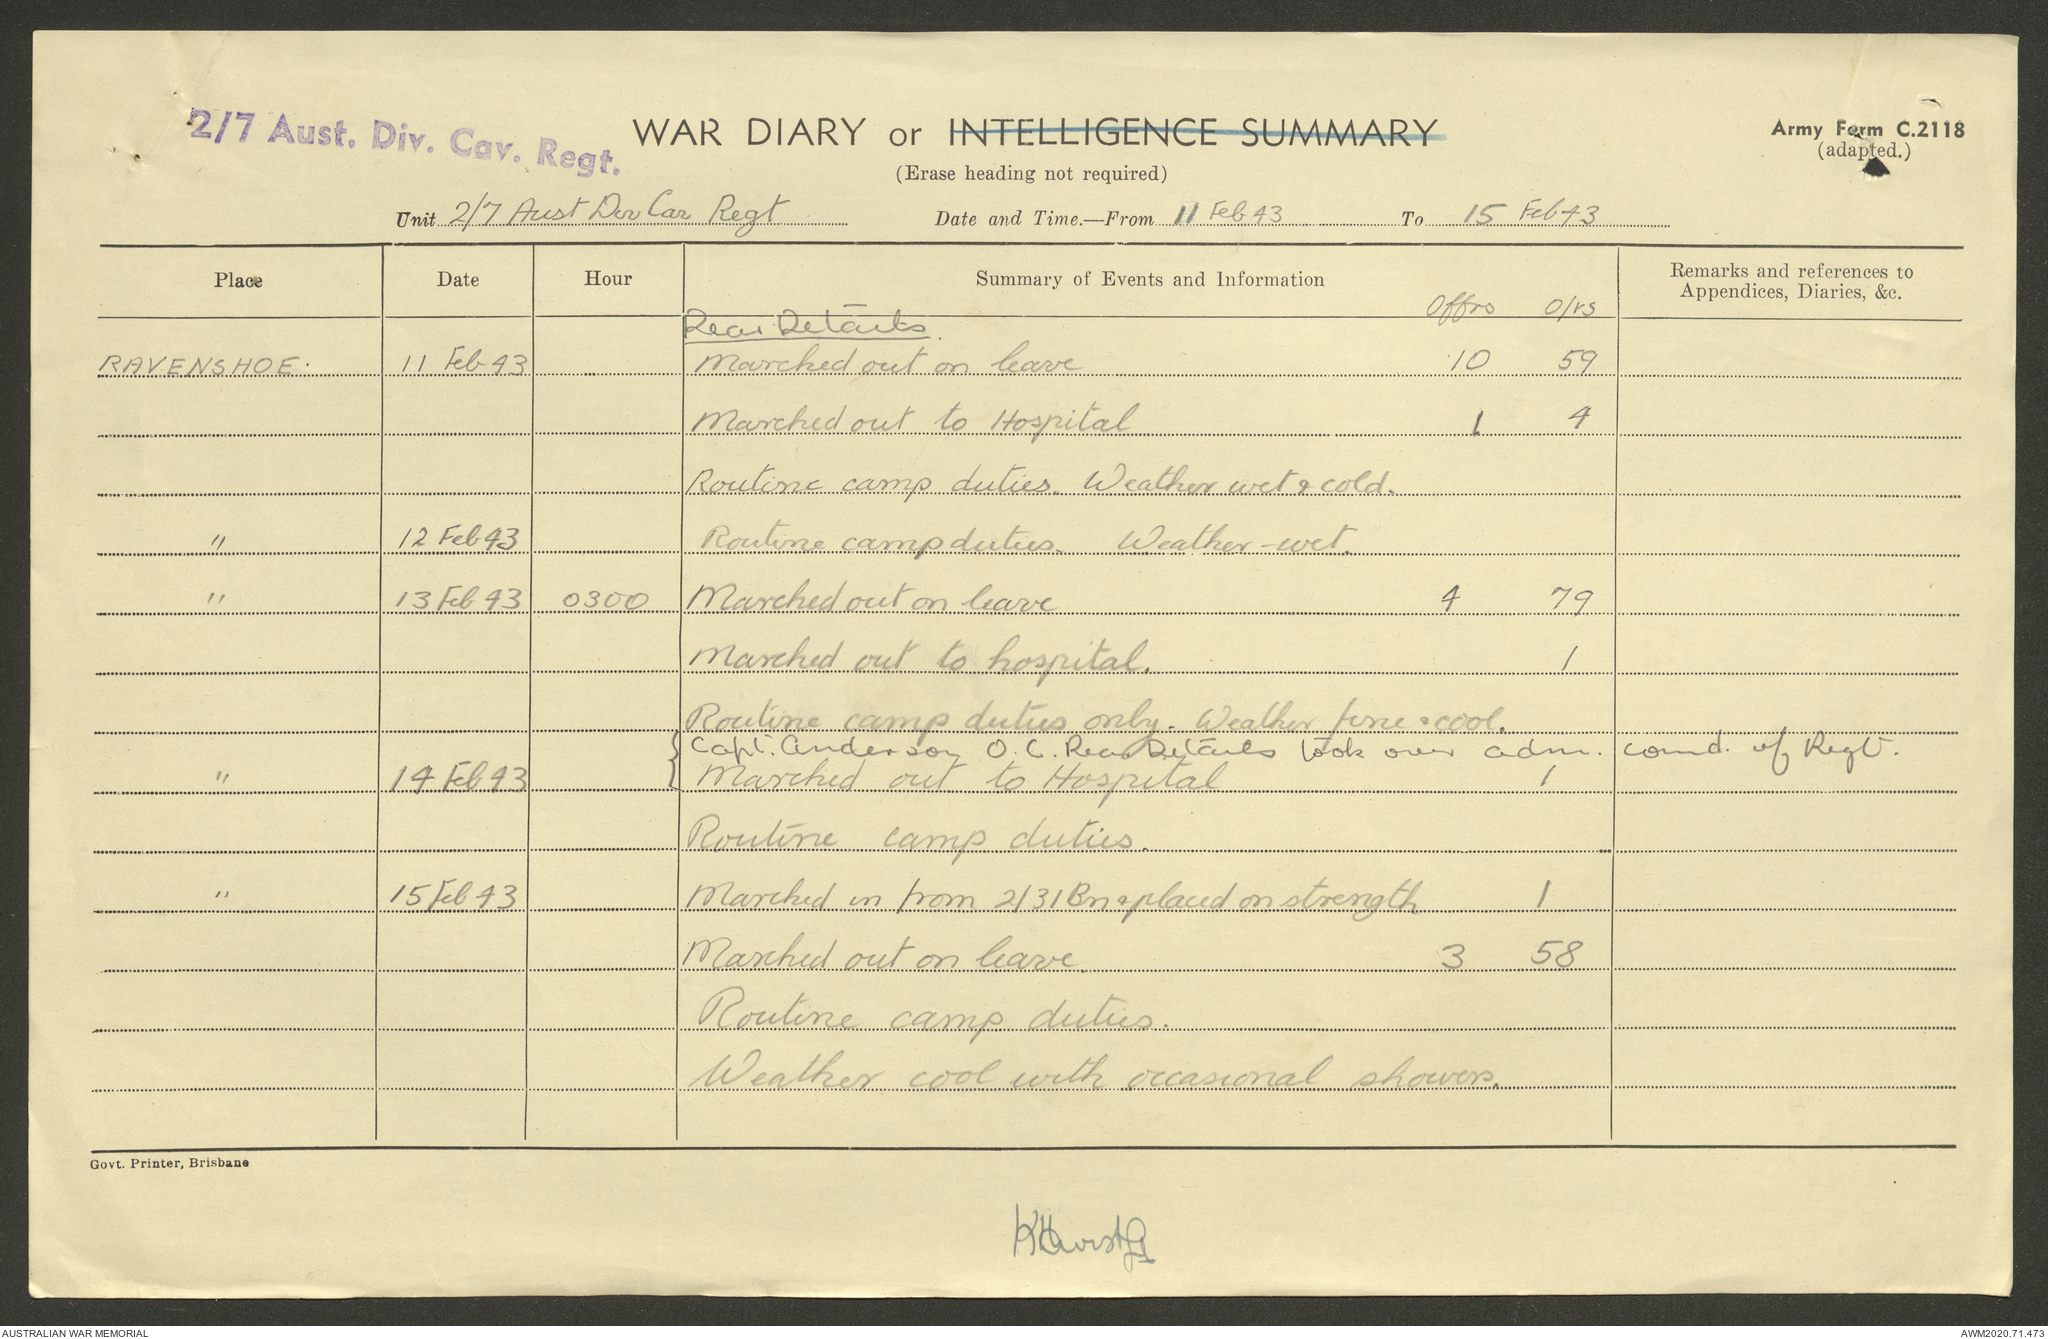 2/7 Aust. Div. Cav. Regt.
WAR DIARY or INTELLIGENCE SUMMARY
Army Form C.2118
(adapted.)
(Erase heading not required)
Unit 2/7 Aust Div Cav Regt Date and Time.—From 11 Feb 43 To 15 Feb 43
Place Date Hour Summary of Events and Information Remarks and references to
Appendices, Diaries, &c.
Offrs O/rs
Rear Details.
RAVENSHOE. 11 Feb 43 Marched out on leave 10 59
Marched out to Hospital 1 4
Routine camp duties. Weather wet & cold.
" 12 Feb 43 Routine camp duties. Weather - wet.
" 13 Feb 43 0300 Marched out on leave 4 79
Marched out to hospital. 1
Routine camp duties only. Weather fine & cool.
Capt. Anderson O.C. Rear Details took over adm. comd. of Regt.
" 14 Feb 43 Marched out to Hospital 1
Routine camp duties.
" 15 Feb 43 Marched in from 2/31 Bn & placed on strength 1
Marched out on leave. 3 58
Routine camp duties.
Weather cool with occasional showers.
Govt. Printer, Brisbane
AUSTRALIAN WAR MEMORIAL
AWM2020.71.473